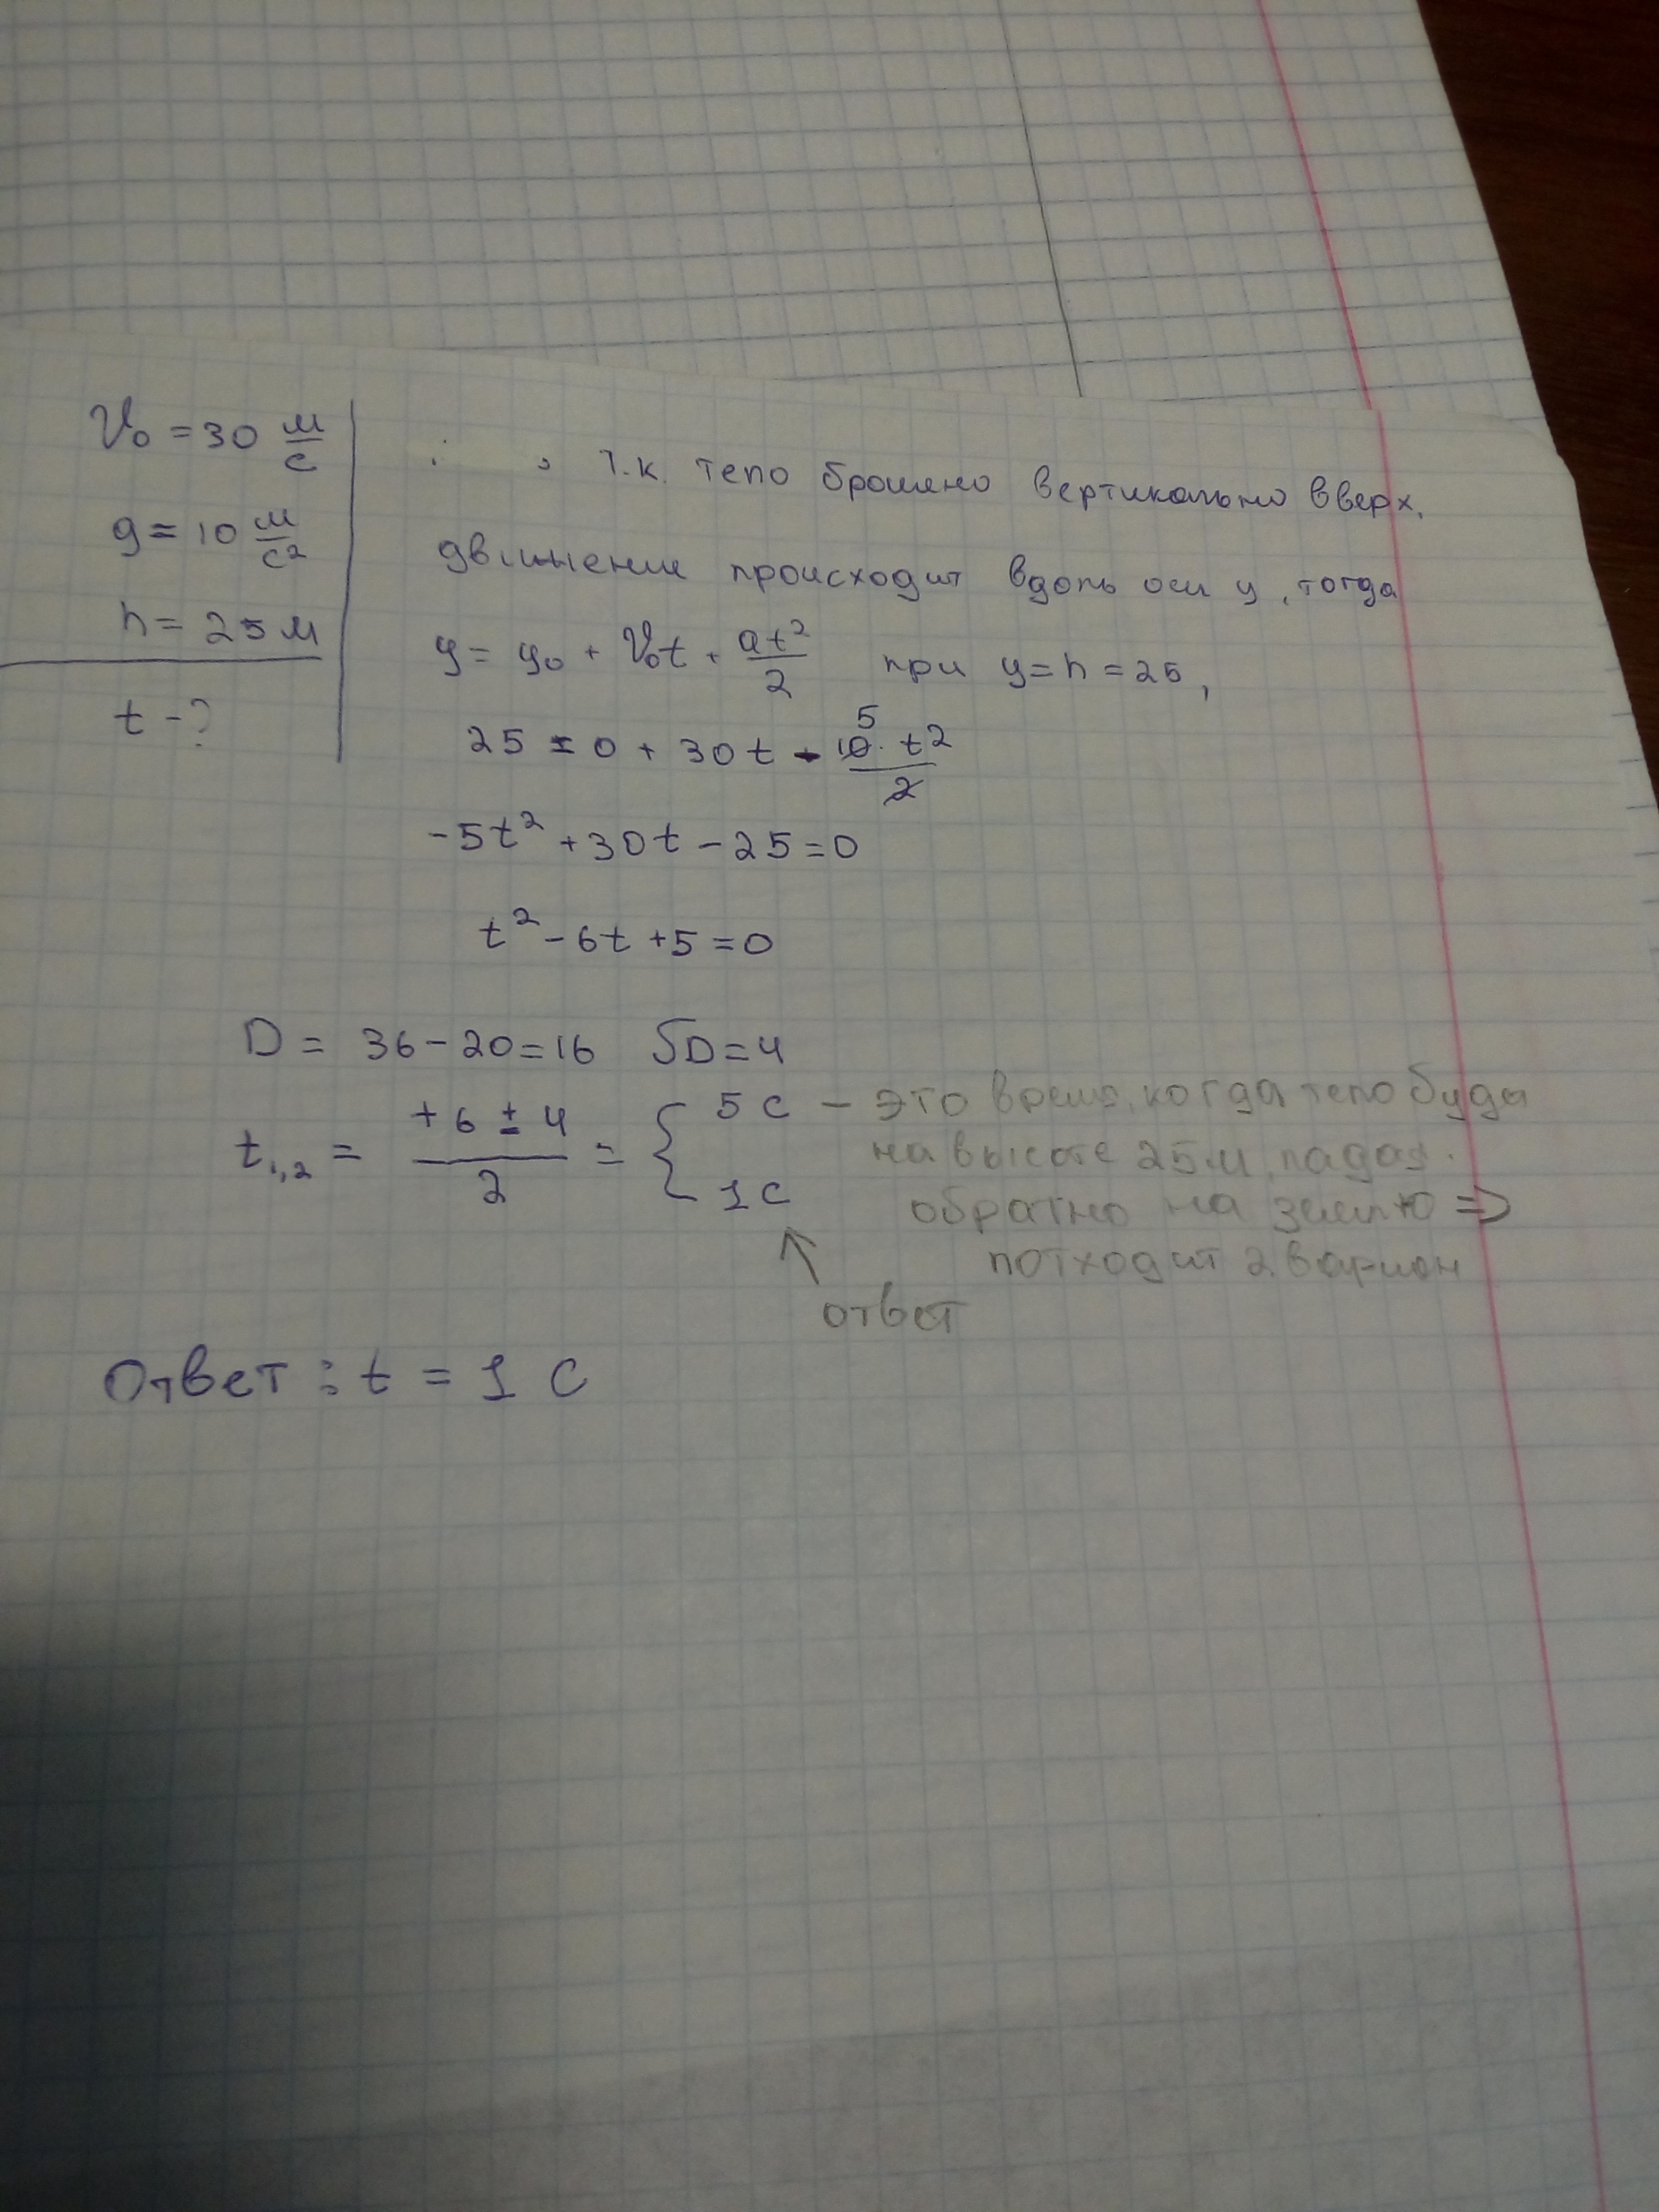 V₀ = 30 м/с
g = 10 м/с²
h = 25 м
t - ?
Т.к. тело брошено вертикально вверх,
движение происходит вдоль оси y, тогда
y = y₀ + V₀t + at²/2 при y = h = 25,
25 = 0 + 30t - 10⁵ · t²/2
-5t² + 30t - 25 = 0
t² - 6t + 5 = 0
D = 36 - 20 = 16 √D = 4
t₁,₂ = (+6 ± 4)/2 = { 5 с - это время, когда тело буде
1 с на высоте 25 м, падая
обратно на землю =>
потходит 2 вариан
ответ
Ответ: t = 1 с